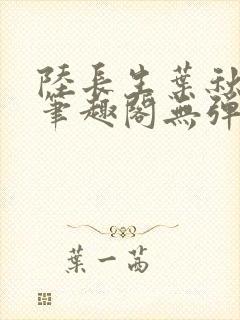 陸長生葉秋
筆趣閣無彈
葉一茜